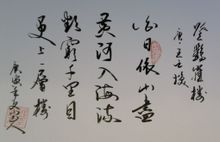 登鸛雀樓
唐王之渙
白日依山盡
黃河入海流
欲窮千里目
更上一層樓